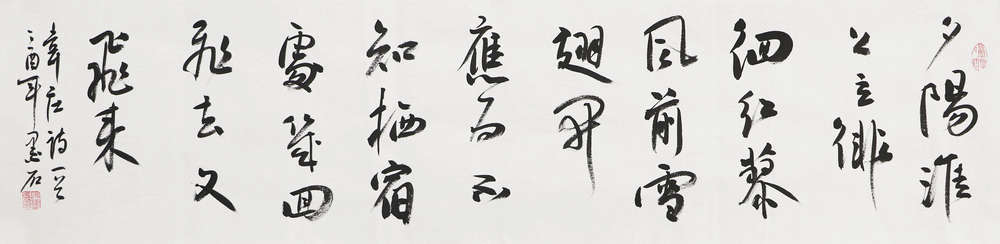 夕陽滩
上立徘
徊红蓼
風前雪
翅開
應為不
知栖宿
處幾回
飛去又
飛來
韋庄詩一首
丁酉年墨石